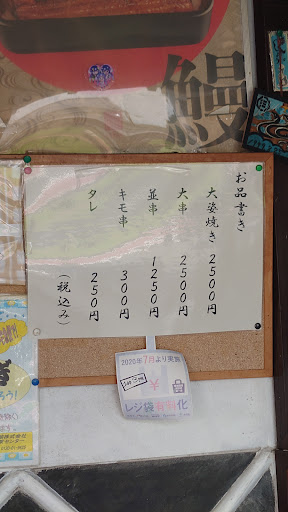 鰻
お品書き
大姿焼き 2500円
大串 2500円
並串 1250円
キモ串 300円
タレ 250円
(税込み)
2020年7月より実施
レジ袋有料化